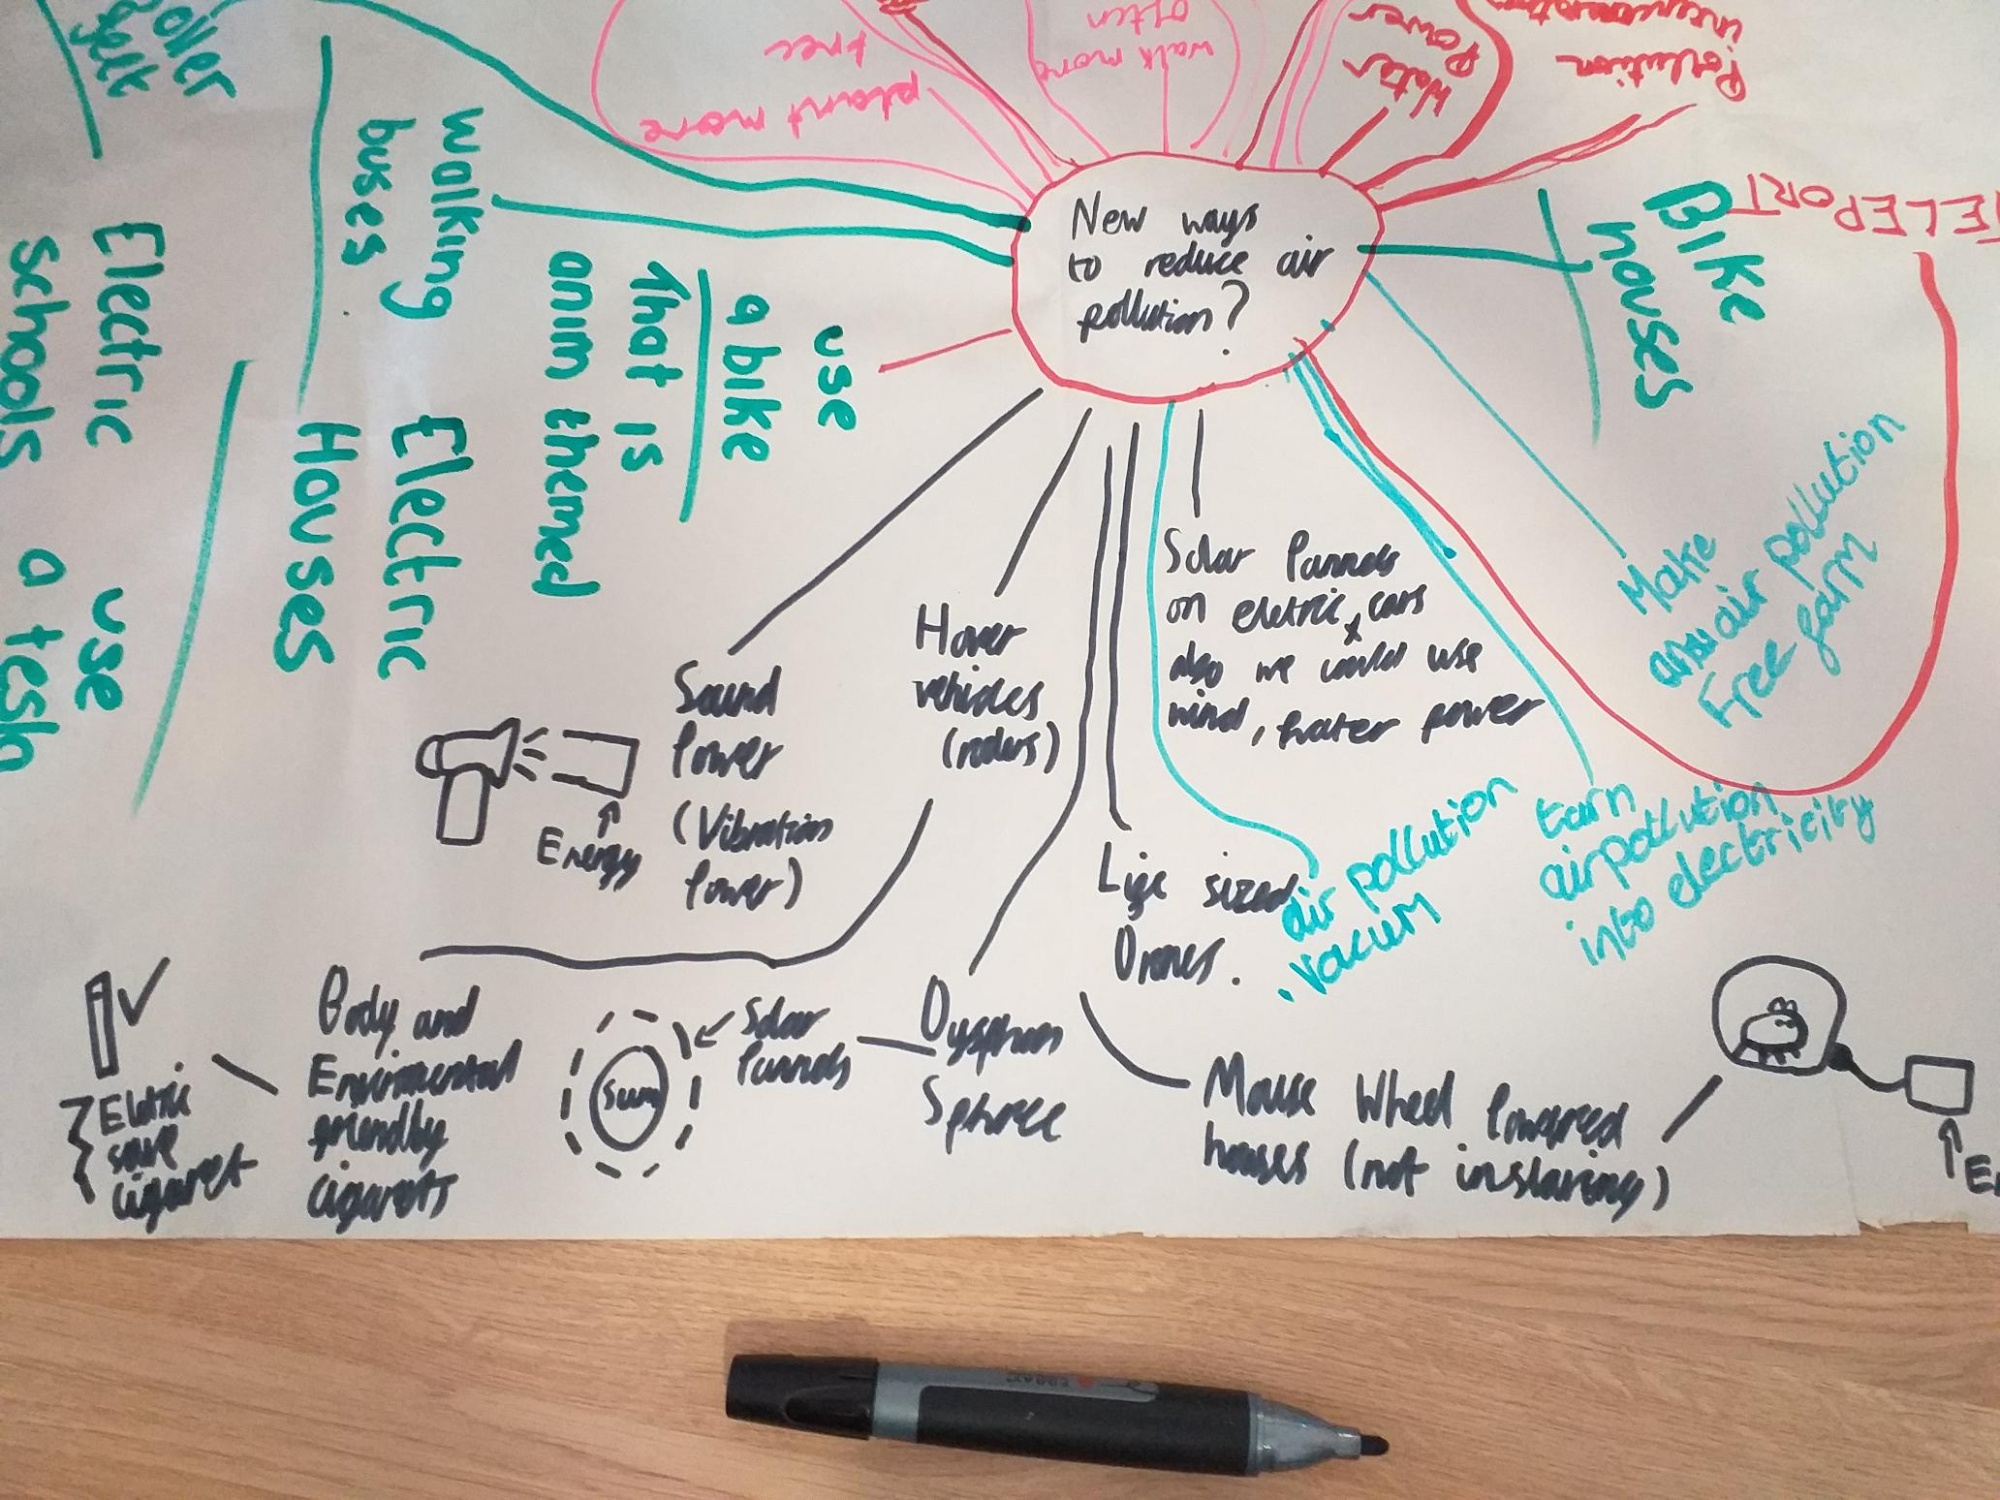 New ways
to reduce air
pollution?
plant more
tree
walk more
often
Water
Power
Pollution
TELEPORT
BIKE
houses
Make
air pollution
Free farm
turn
airpollution
into electricity
air pollution
vacuum
Solar Pannels
on eletric cars
also we could use
wind, water power
Life sized
Drones.
Mouse Wheel Powered
houses (not inslaving)
Dysphan
Sphree
Solar
Pannels
Sun
Hover
vehicles
Sound
Power
(Vibration
Power)
Energy
Body and
Envirmental
friendly
cigarets
Eletric
save
cigaret
use
a bike
that is
anim themed
walking
buses
Electric
Houses
Electric
Schools
use
a tesla